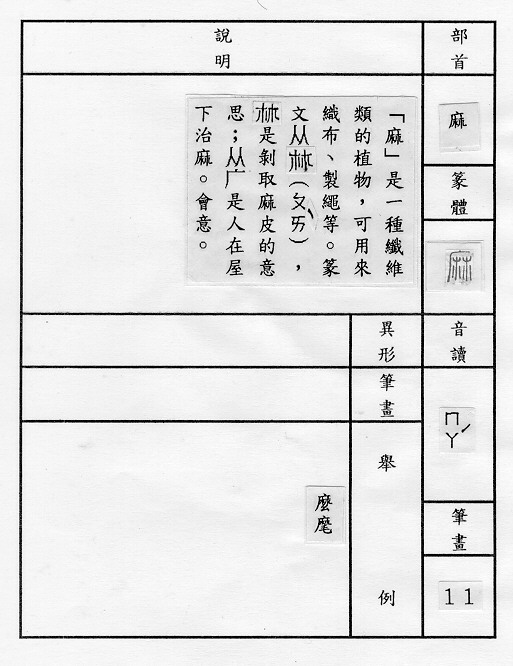 部首
麻
篆體
麻
音讀
ㄇㄚˊ
筆畫
11
說明
「麻」是一種纖維
類的植物，可用來
織布、製繩等。篆
文从𣏟（ㄆㄞˋ），
𣏟是剝取麻皮的意
思；从广是人在屋
下治麻。會意。
異形
筆畫
舉例
麼麾